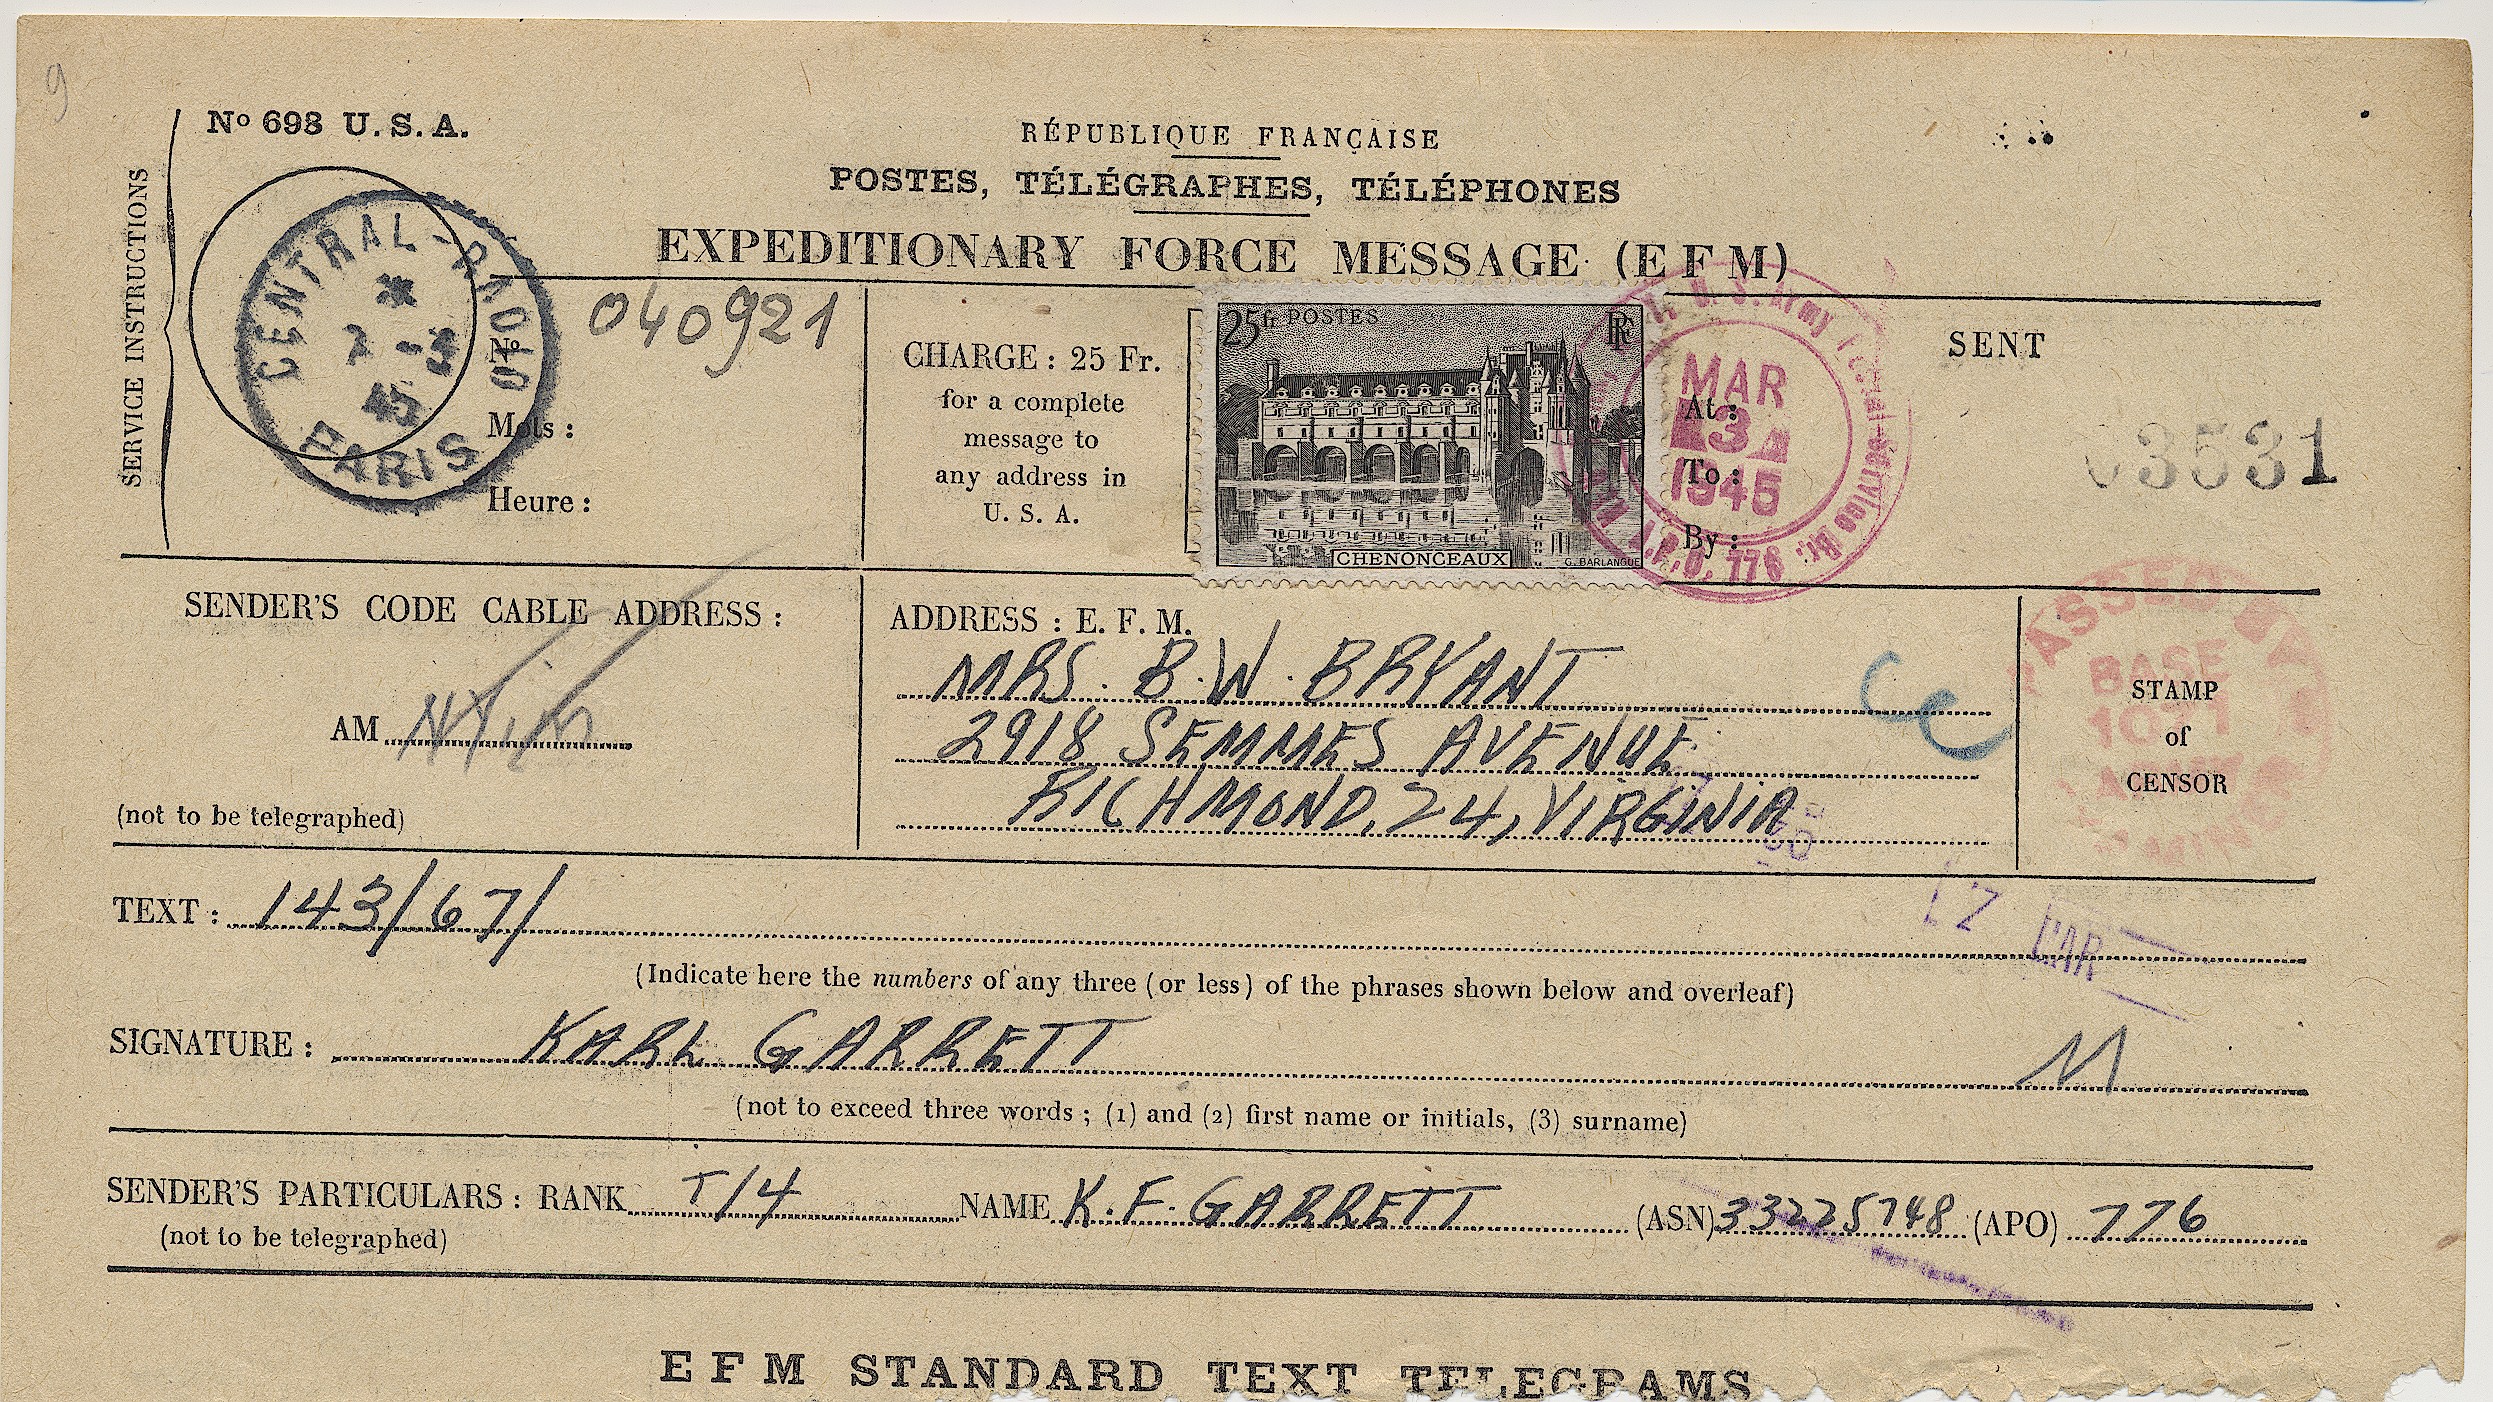 9
Nº 698 U.S.A.
RÉPUBLIQUE FRANÇAISE
POSTES, TÉLÉGRAPHES, TÉLÉPHONES
EXPEDITIONARY FORCE MESSAGE (EFM)
SERVICE INSTRUCTIONS
CENTRAL-RADIO
PARIS
45
040921
Nº
Mots :
Heure :
CHARGE : 25 Fr.
for a complete
message to
any address in
U. S. A.
25fr POSTES
RF
CHENONCEAUX
G. BARLANGUE
U. S. Army Postal Service
MAR
3
1945
A.P.O. 776
SENT
At :
To :
By :
03531
SENDER'S CODE CABLE ADDRESS :
AM
(not to be telegraphed)
ADDRESS : E. F. M.
MRS. B.W. BRYANT
2918 SEMMES AVENUE
RICHMOND, 24, VIRGINIA
PASSED BY
BASE
STAMP
of
CENSOR
TEXT : 143/67/
(Indicate here the numbers of any three (or less) of the phrases shown below and overleaf)
SIGNATURE : KARL GARRETT
M
(not to exceed three words ; (1) and (2) first name or initials, (3) surname)
SENDER'S PARTICULARS : RANK T/4 NAME K. F. GARRETT (ASN) 33225748 (APO) 776
(not to be telegraphed)
EFM STANDARD TEXT TELEGRAMS